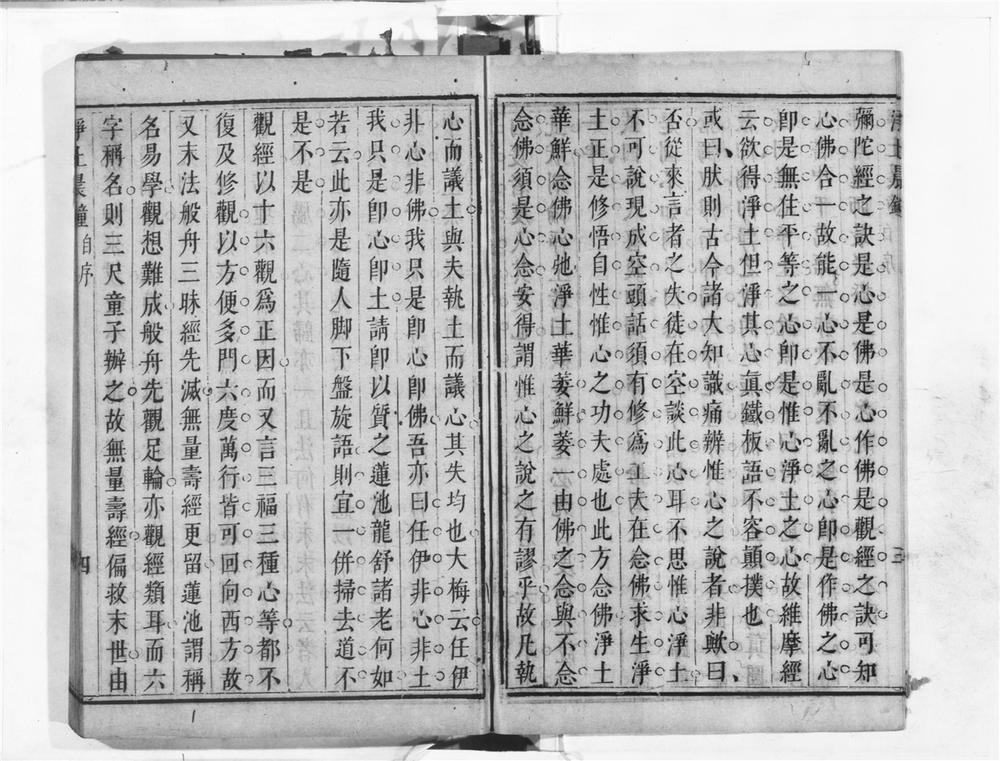 淨土晨鐘 自序 三
彌陀經之訣是心是佛是心作佛是觀經之訣可知
心佛合一故能無心不亂不亂之心卽是作佛之心
卽是無住平等之心卽是惟心淨土之心故維摩經
云欲得淨土但淨其心眞鐵板語不容顛撲也
或曰肰則古今諸大知識痛辨惟心之說者非歟曰
否從來言者之失徒在空談此心耳不思惟心淨土
不可說現成空頭話須有修爲工夫在念佛求生淨
土正是修悟自性惟心之功夫處也此方念佛淨土
華鮮念佛心弛淨土華萎鮮萎一由佛之念與不念
念佛須是心念安得謂惟心之說之有謬乎故凡執
心而議土與夫執土而議心其失均也大梅云任伊
非心非佛我只是卽心卽佛吾亦曰任伊非心非土
我只是卽心卽土請卽以質之蓮池龍舒諸老何如
若云此亦是隨人脚下盤旋語則宜一併掃去道不
是不是
觀經以十六觀爲正因而又言三福三種心等都不
復及修觀以方便多門六度萬行皆可回向西方故
又末法般舟三昧經先滅無量壽經更留蓮池謂稱
名易學觀想難成般舟先觀足輪亦觀經類耳而六
字稱名則三尺童子辦之故無量壽經偏救末世由
淨土晨鐘 自序 四